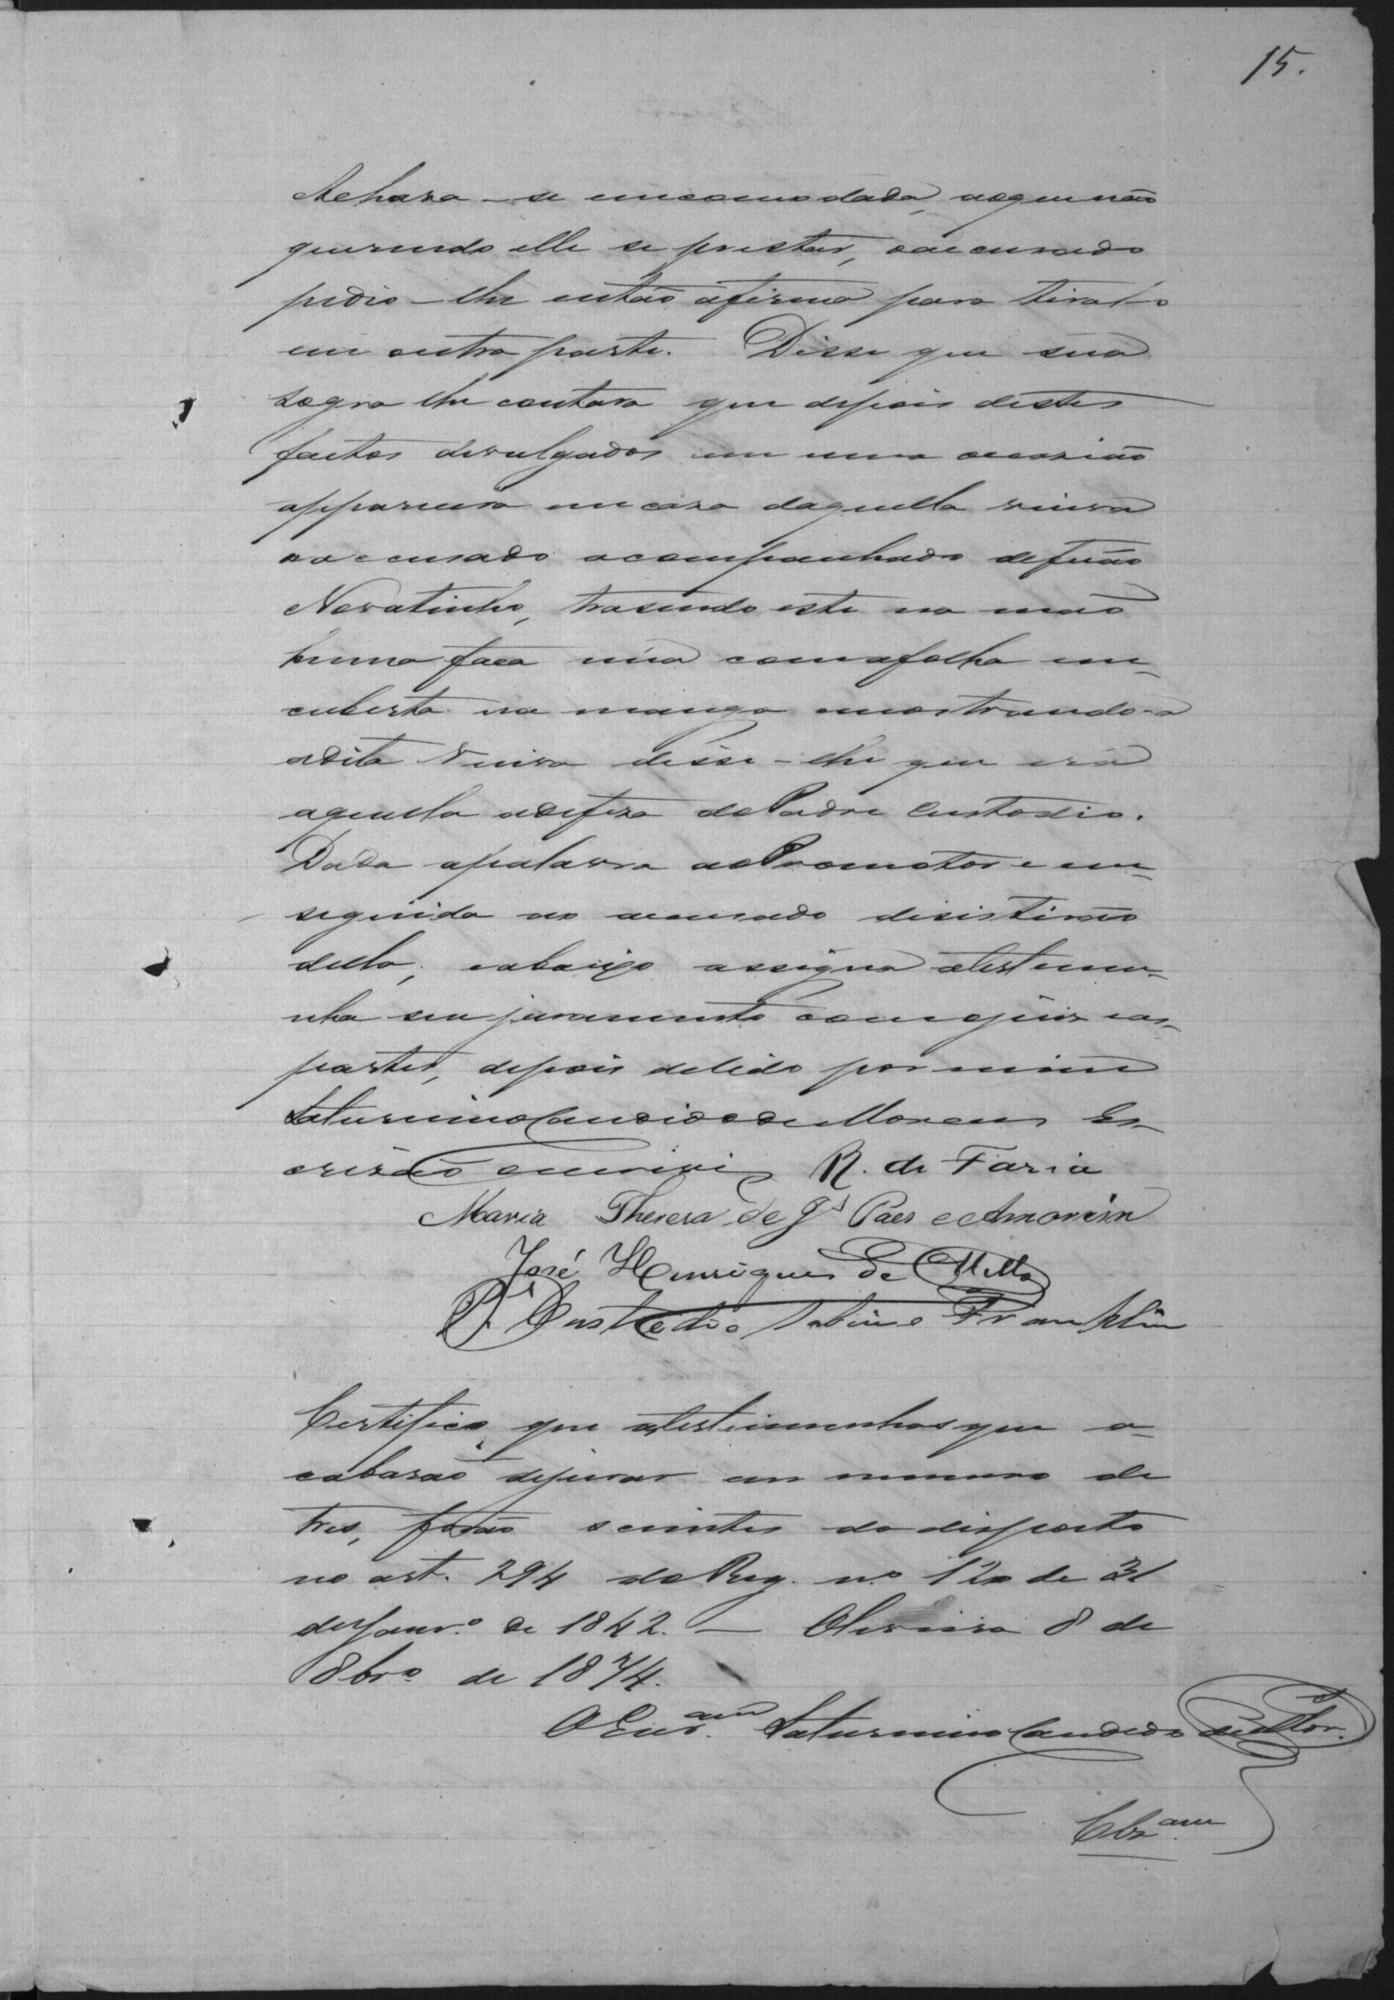 15.
Achava-se incomodada, aoque não
querendo elle se prestar, oaccusado
pedio-lhe então afirma para tiral-o
em outra parte. Disse que sua
sogra lhe contara que depois destes
factos divulgados em uma occasião
apparecera em casa daquella viuva
oaccusado acompanhado defuão
Novatinho, trasendo este na mão
huma faca núa comafolha en-
cuberta na manga mostrando-a
adita viuva disse-lhe que era
aquella adefeza doPadre Custodio.
Dada apalavra aoPromotor e em
seguida ao accusado desistirão
della, eabaixo assigna atestemu-
nha seu juramento comojuiz eas
partes, depois delido por mim
Saturnino Candido de Moraes Es-
crivão escrevi R. de Faria
Maria Thereza de J.s Paes e Amorim
José Henriques de Mello
P. Custodio Sabino Franklin
Certifico que astestimunhas que a-
cabarão dejurar em numero de
tres, forão scientes do disposto
no art. 294 do Reg. nº 120 de 31
de Janr.º de 1842. — Oliveira 8 de
8brº de 1874.
O Escr.am Saturnino Candido de Mor.
Clz.am